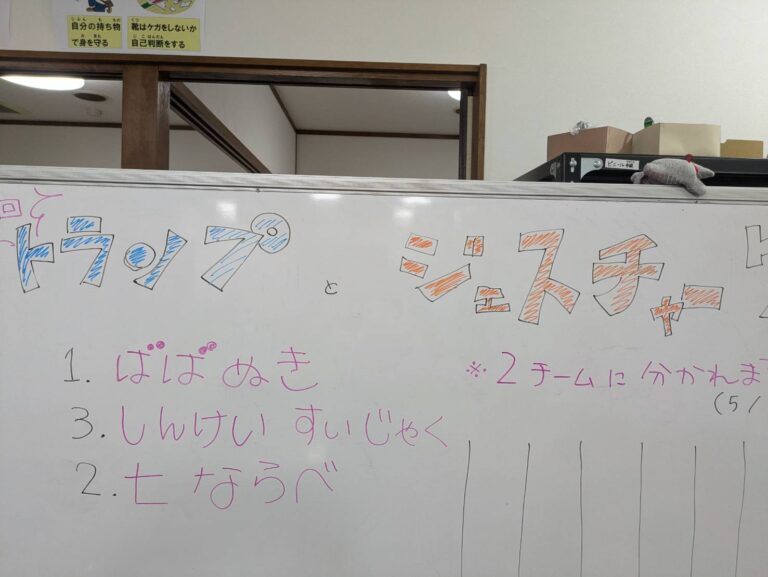 自分の持ち物
で身を守る
靴はケガをしないか
自己判断をする
トランプ と ジェスチャー
1. ばばぬき
3. しんけいすいじゃく
2. 七ならべ
※2チームに分かれま
(5/